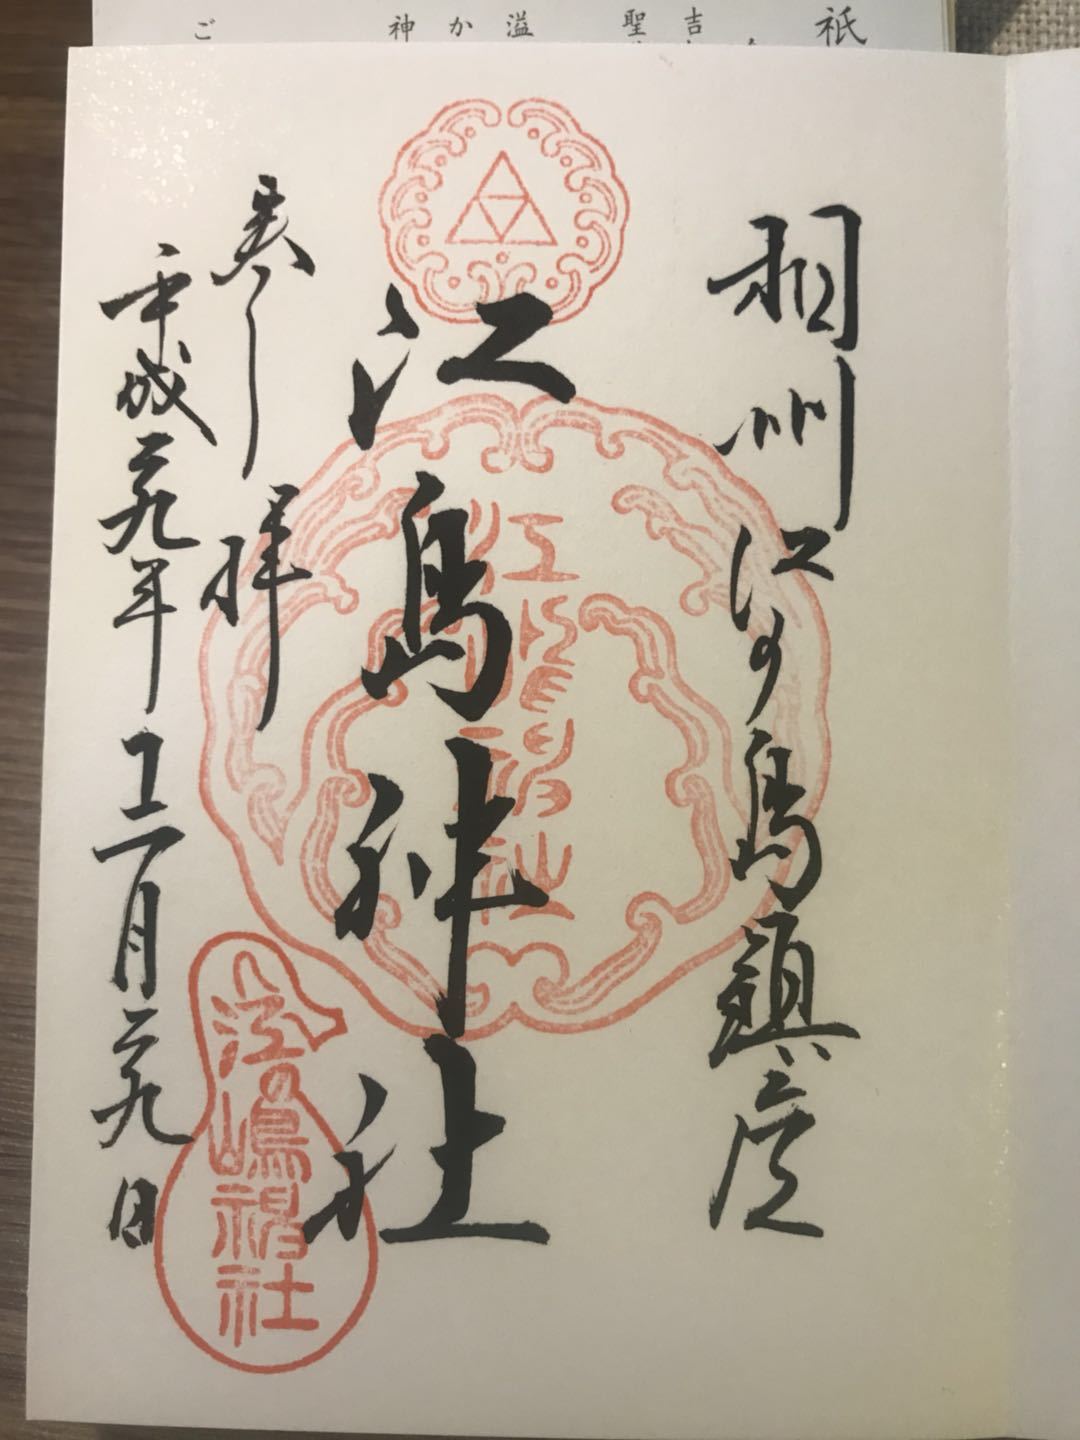 相州江の島鎮座
江島神社
奉拝
平成二九年十二月二九日
江の嶋神社
祇
吉
聖
溢
か
神
ご